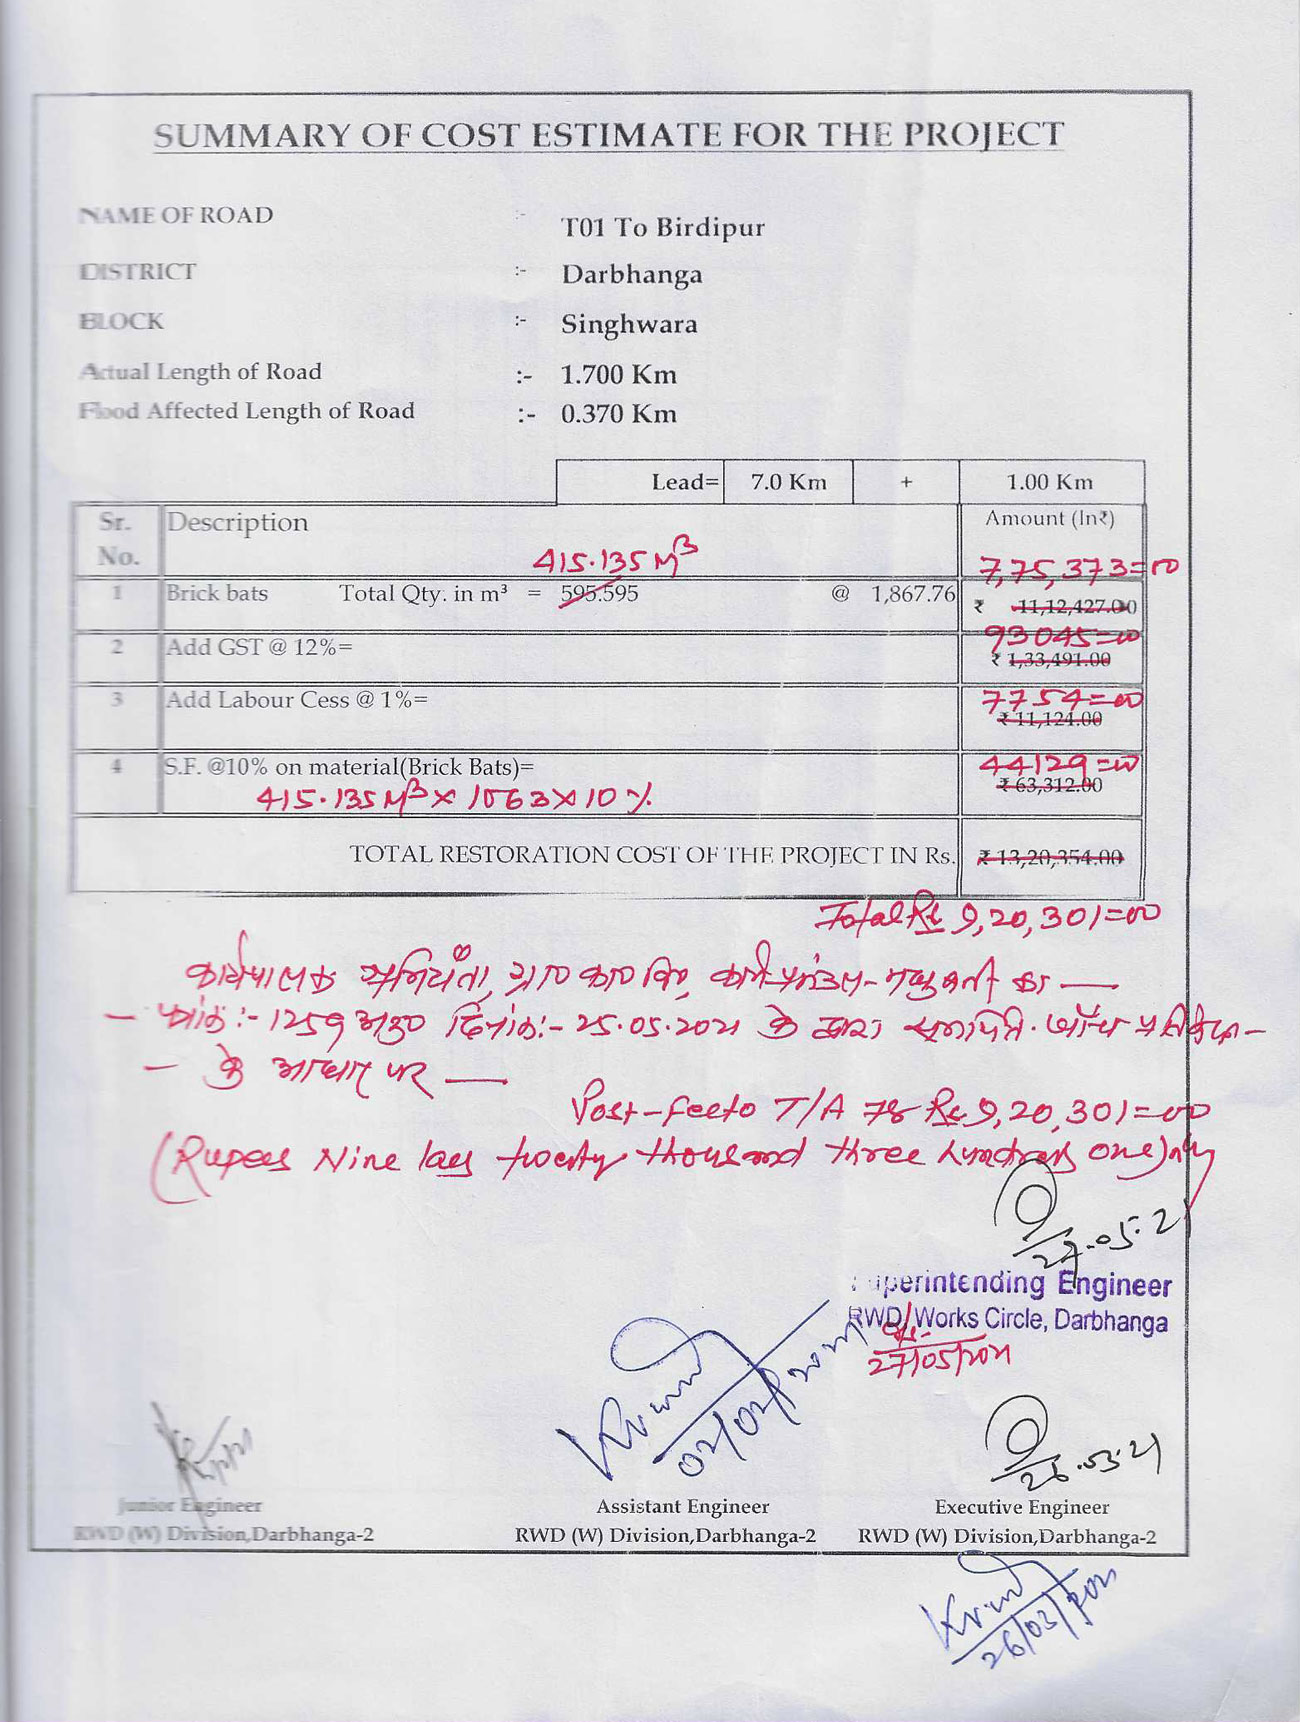 SUMMARY OF COST ESTIMATE FOR THE PROJECT
NAME OF ROAD :- T01 To Birdipur
DISTRICT :- Darbhanga
BLOCK :- Singhwara
Actual Length of Road :- 1.700 Km
Flood Affected Length of Road :- 0.370 Km
Lead= 7.0 Km + 1.00 Km
Sr. No. Description Amount (In₹)
415.135 M³ 7,75,373=00
1 Brick bats Total Qty. in m³ = 595.595 @ 1,867.76 ₹ 11,12,427.00
93045=00
2 Add GST @ 12%= ₹ 1,33,491.00
7754=00
3 Add Labour Cess @ 1%= ₹ 11,124.00
44129=00
4 S.F. @10% on material(Brick Bats)= ₹ 63,312.00
415.135 M³ × 1063 × 10 %
TOTAL RESTORATION COST OF THE PROJECT IN Rs. ₹ 13,20,354.00
Total Rs 9,20,301=00
कार्यपालक अभियंता, ग्रा० का० वि०, कार्य प्रमंडल- का —
— :- 1259 अनु० दिनांक:- 25.05.2021 के द्वारा जाँच —
— के आधार पर —
Post-feeto T/A Rs 9,20,301=00
(Rupees Nine lacs twenty thousand three hundred one) only
27.05.21
Superintending Engineer
RWD Works Circle, Darbhanga
27/05/2021
02/02/2021
26.03.21
Junior Engineer Assistant Engineer Executive Engineer
RWD (W) Division,Darbhanga-2 RWD (W) Division,Darbhanga-2 RWD (W) Division,Darbhanga-2
26/03/2021